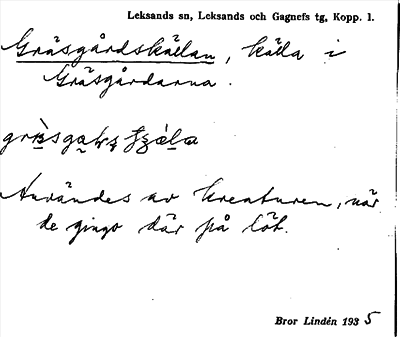 Leksands sn, Leksands och Gagnefs tg, Kopp. l.
Gräsgårdskällan, källa i
Gräsgårdarna.
Användes av kreaturen, när
de gingo där på löt.
Bror Lindén 1935